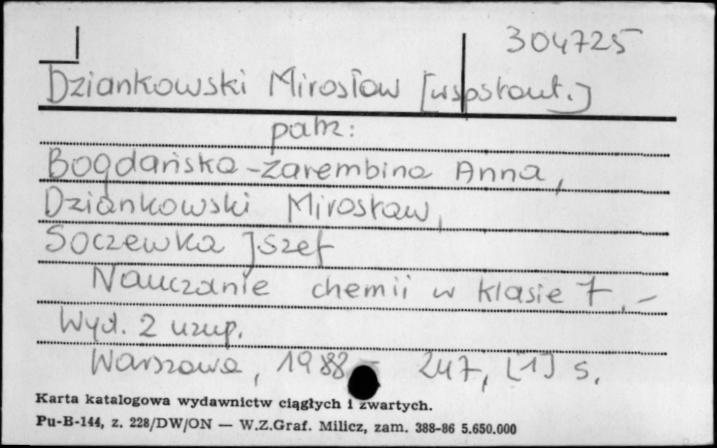 304725
Dziankowski Mirosław [wspołaut.]
patrz:
Bogdańska-Zarembina Anna,
Dziankowski Mirosław,
Soczewka Jszef
Nauczanie chemii w klasie 7. -
Wyd. 2 uzup.
Warszawa, 1988 - 247, [1] s.
Karta katalogowa wydawnictw ciągłych i zwartych.
Pu-B-144, z. 228/DW/ON — W.Z.Graf. Milicz, zam. 388-86 5.650.000